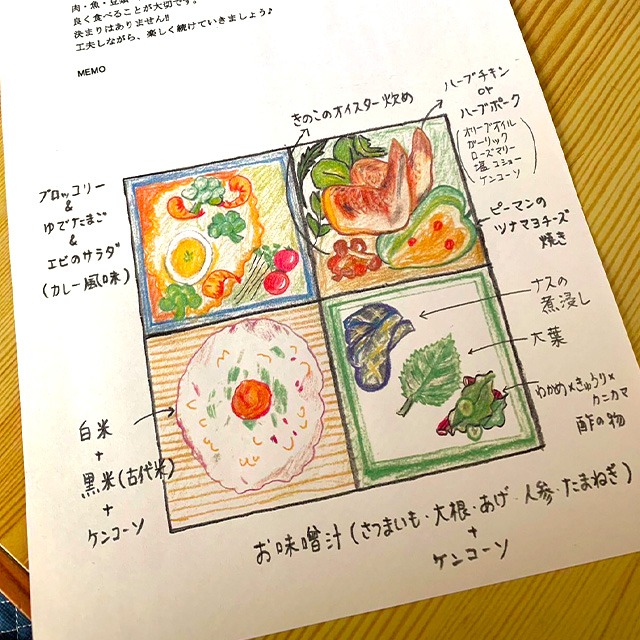 良く食べることが大切です。
決まりはありません!!
工夫しながら、楽しく続けていきましょう♪
MEMO
きのこのオイスター炒め
ハーブチキン
or
ハーブポーク
(オリーブオイル
ガーリック
ローズマリー
塩コショー
ケンコーソ)
ブロッコリー
&
ゆでたまご
&
エビのサラダ
(カレー風味)
ピーマンの
ツナマヨチーズ
焼き
ナスの
煮浸し
大葉
わかめ×きゅうり×
カニカマ
酢の物
白米
+
黒米(古代米)
+
ケンコーソ
お味噌汁(さつまいも・大根・あげ・人参・たまねぎ)
+
ケンコーソ